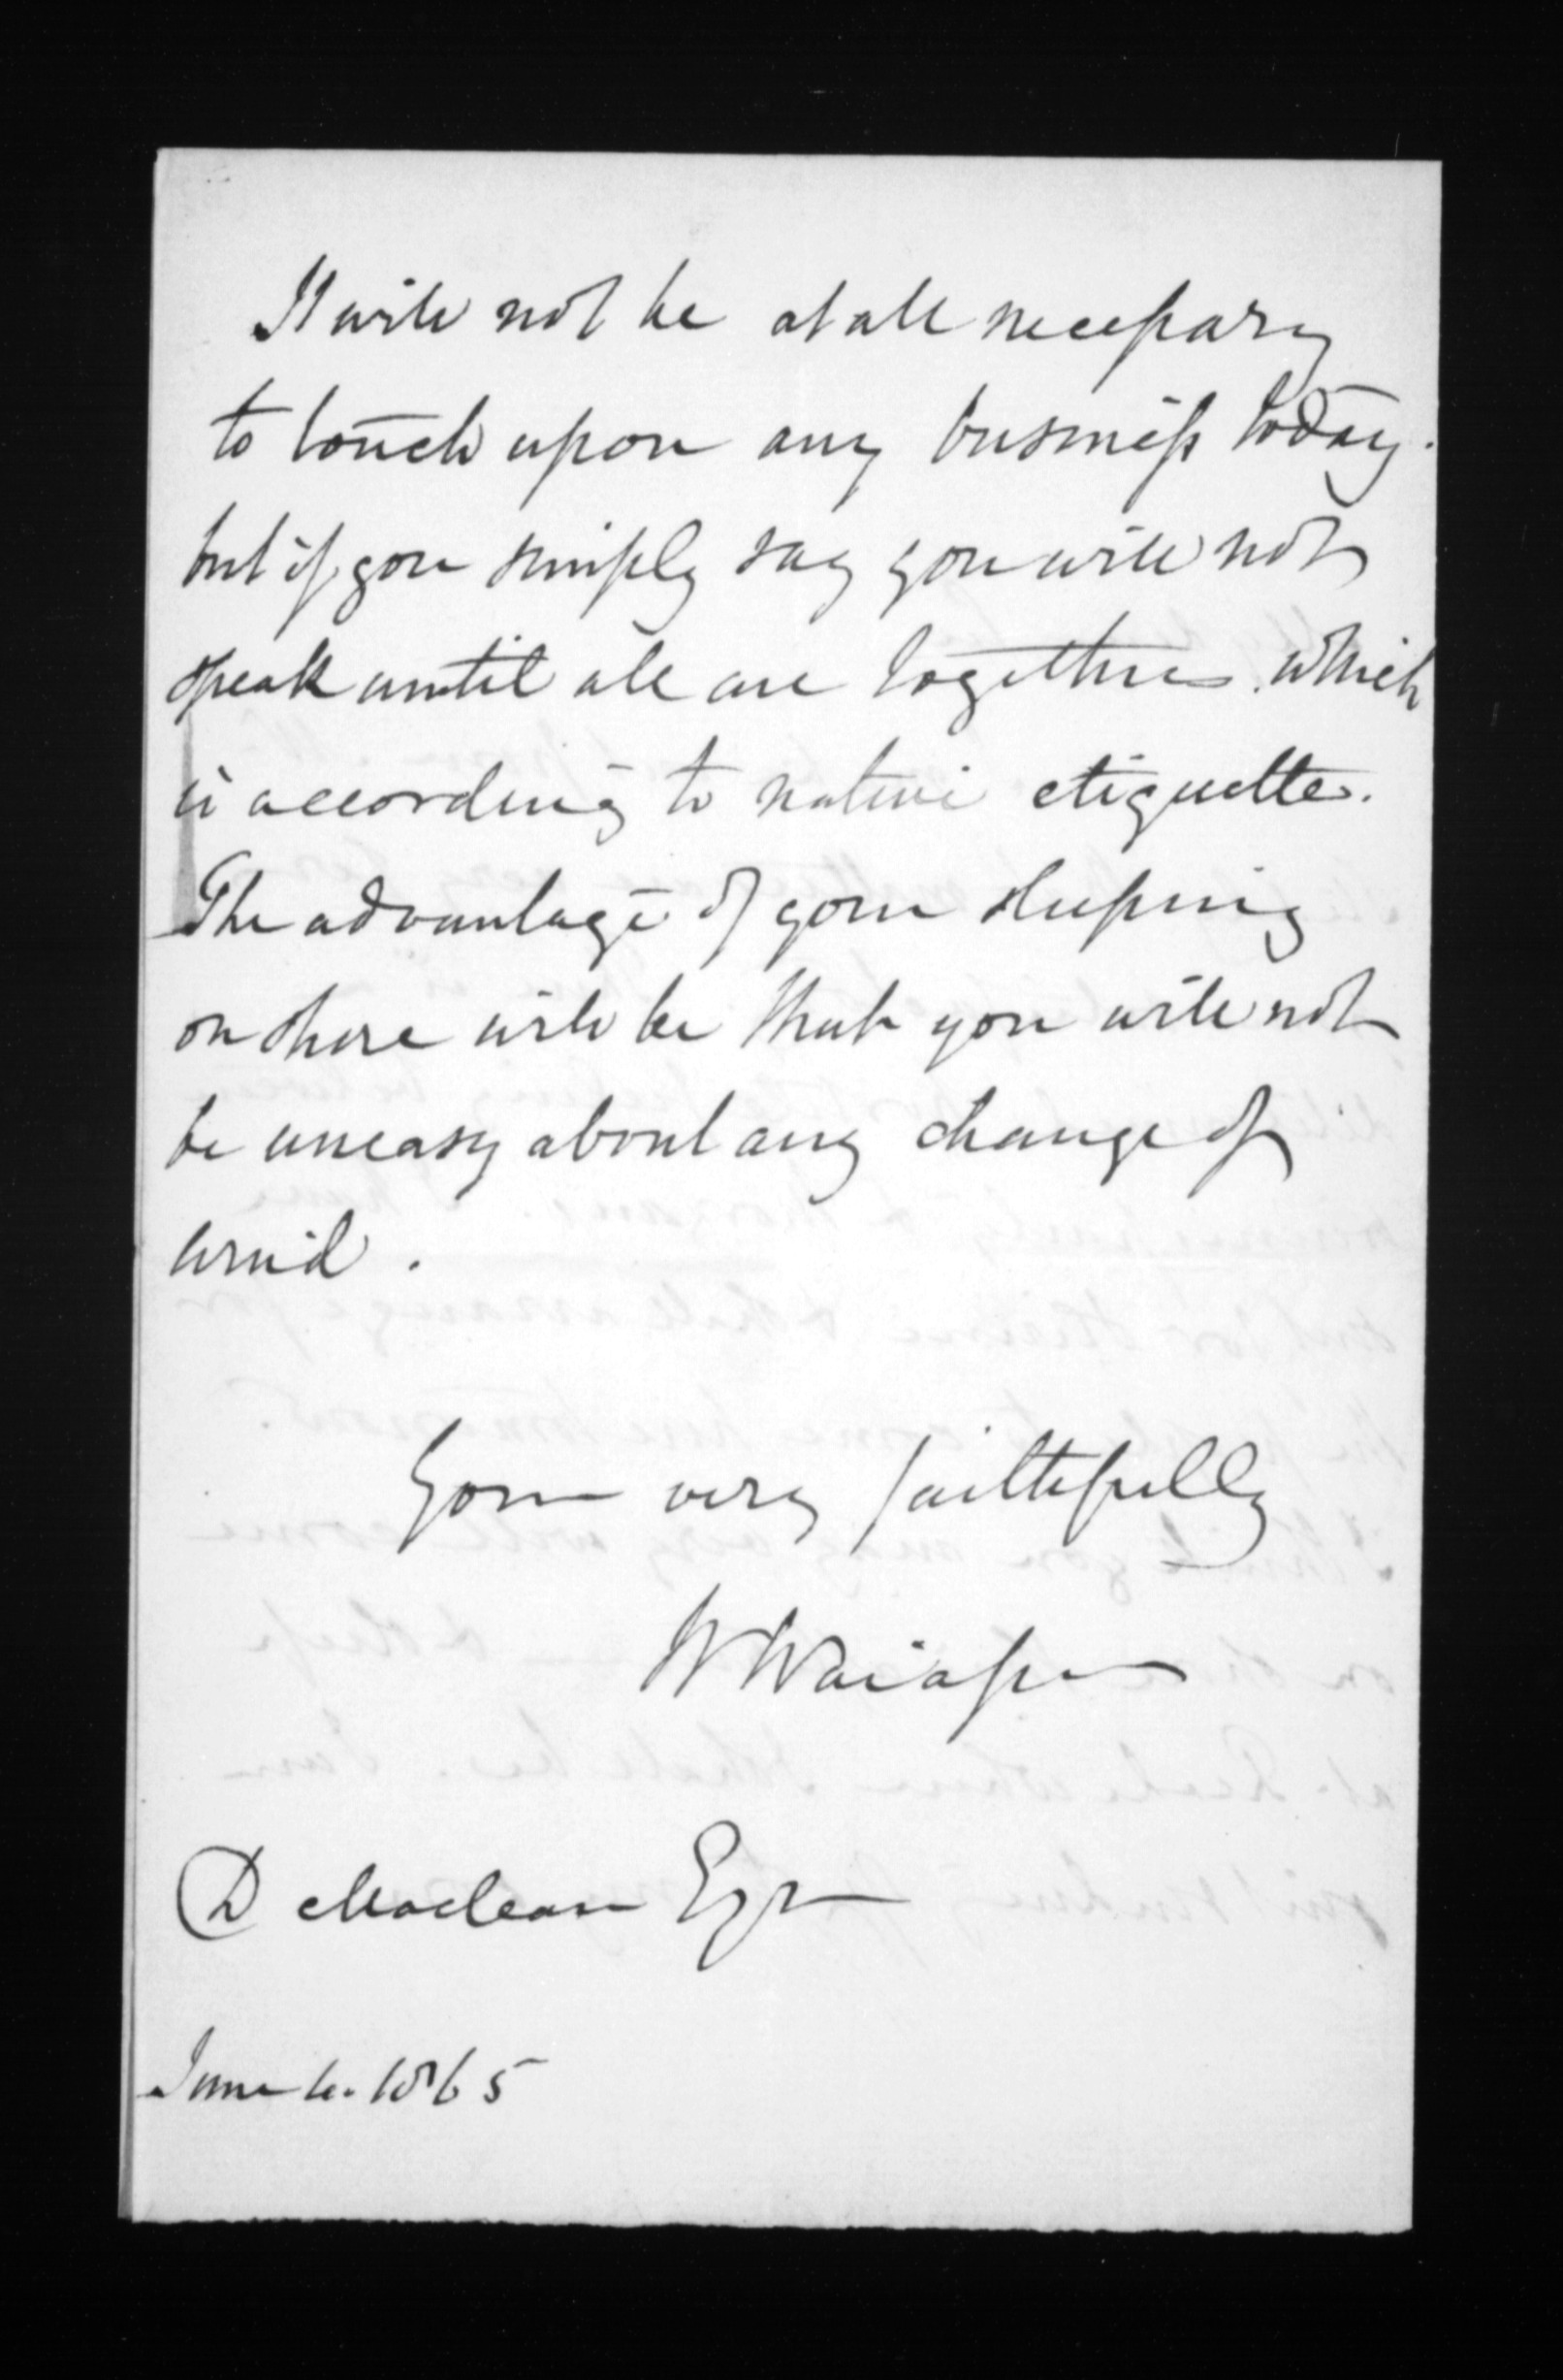 It will not be at all necessary
to touch upon any business today.
but if you simply say you will not
speak until all are together. which
is according to native etiquette.
The advantage of your sleeping
on shore will be that you will not
be uneasy about any change of
wind.
Your very faithfully
W Waiapu
D Maclean Esqr
June 6. 1865